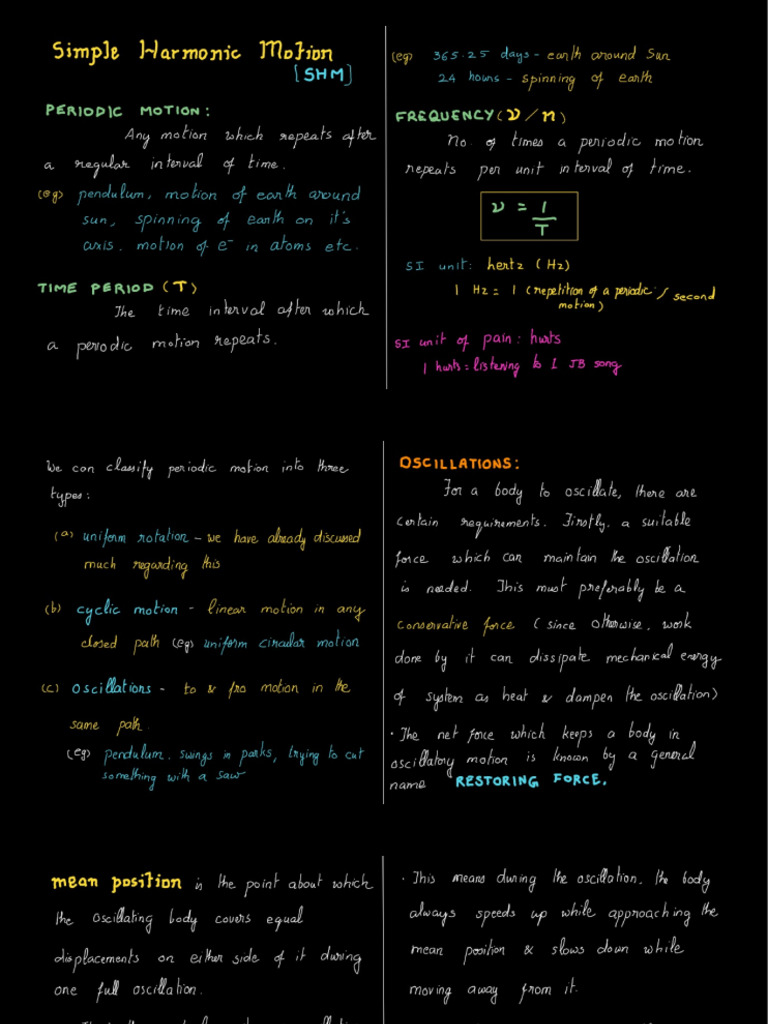 Simple Harmonic Motion
[SHM]
PERIODIC MOTION:
Any motion which repeats after
a regular interval of time.
(eg) pendulum, motion of earth around
sun, spinning of earth on it's
axis. motion of e⁻ in atoms etc.
TIME PERIOD (T)
The time interval after which
a periodic motion repeats.
(eg) 365.25 days - earth around sun
24 hours - spinning of earth
FREQUENCY (ν/n)
No. of times a periodic motion
repeats per unit interval of time.
ν = 1/T
SI unit: hertz (Hz)
1 Hz = 1 (repetition of a periodic motion) / second
SI unit of pain: hurts
1 hurts = listening to 1 JB song
We can classify periodic motion into three
types:
(a) uniform rotation - we have already discussed
much regarding this
(b) cyclic motion - linear motion in any
closed path (eg) uniform circular motion
(c) oscillations - to & fro motion in the
same path.
(eg) pendulum. swings in parks, trying to cut
something with a saw
OSCILLATIONS:
For a body to oscillate, there are
certain requirements. Firstly, a suitable
force which can maintain the oscillation
is needed. This must preferably be a
conservative force (since otherwise, work
done by it can dissipate mechanical energy
of system as heat & dampen the oscillation)
· The net force which keeps a body in
oscillatory motion is known by a general
name RESTORING FORCE.
mean position is the point about which
the oscillating body covers equal
displacements on either side of it during
one full oscillation.
· This means during the oscillation, the body
always speeds up while approaching the
mean position & slows down while
moving away from it.